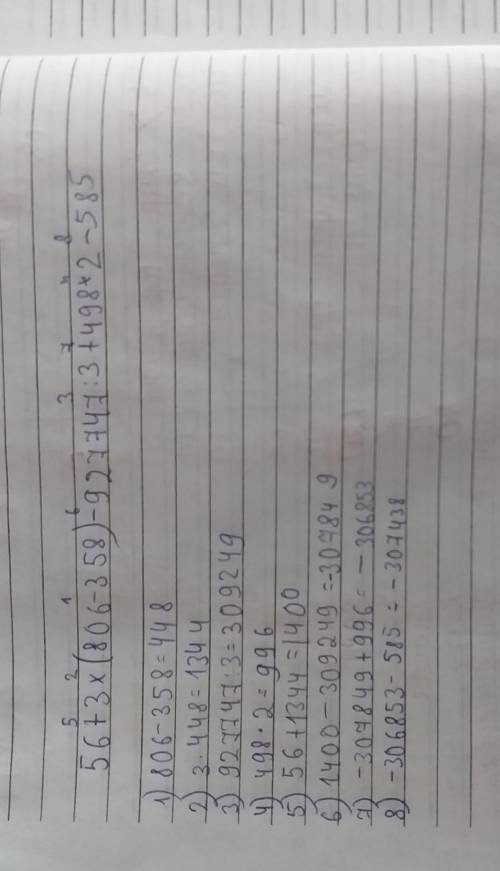 5 2 1 6 3 7 4 8
56+3×(806-358)-927747:3+498*2-585
1) 806-358=448
2) 3·448=1344
3) 927747:3=309249
4) 498·2=996
5) 56+1344=1400
6) 1400-309249=-307849
7) -307849+996=-306853
8) -306853-585=-307438